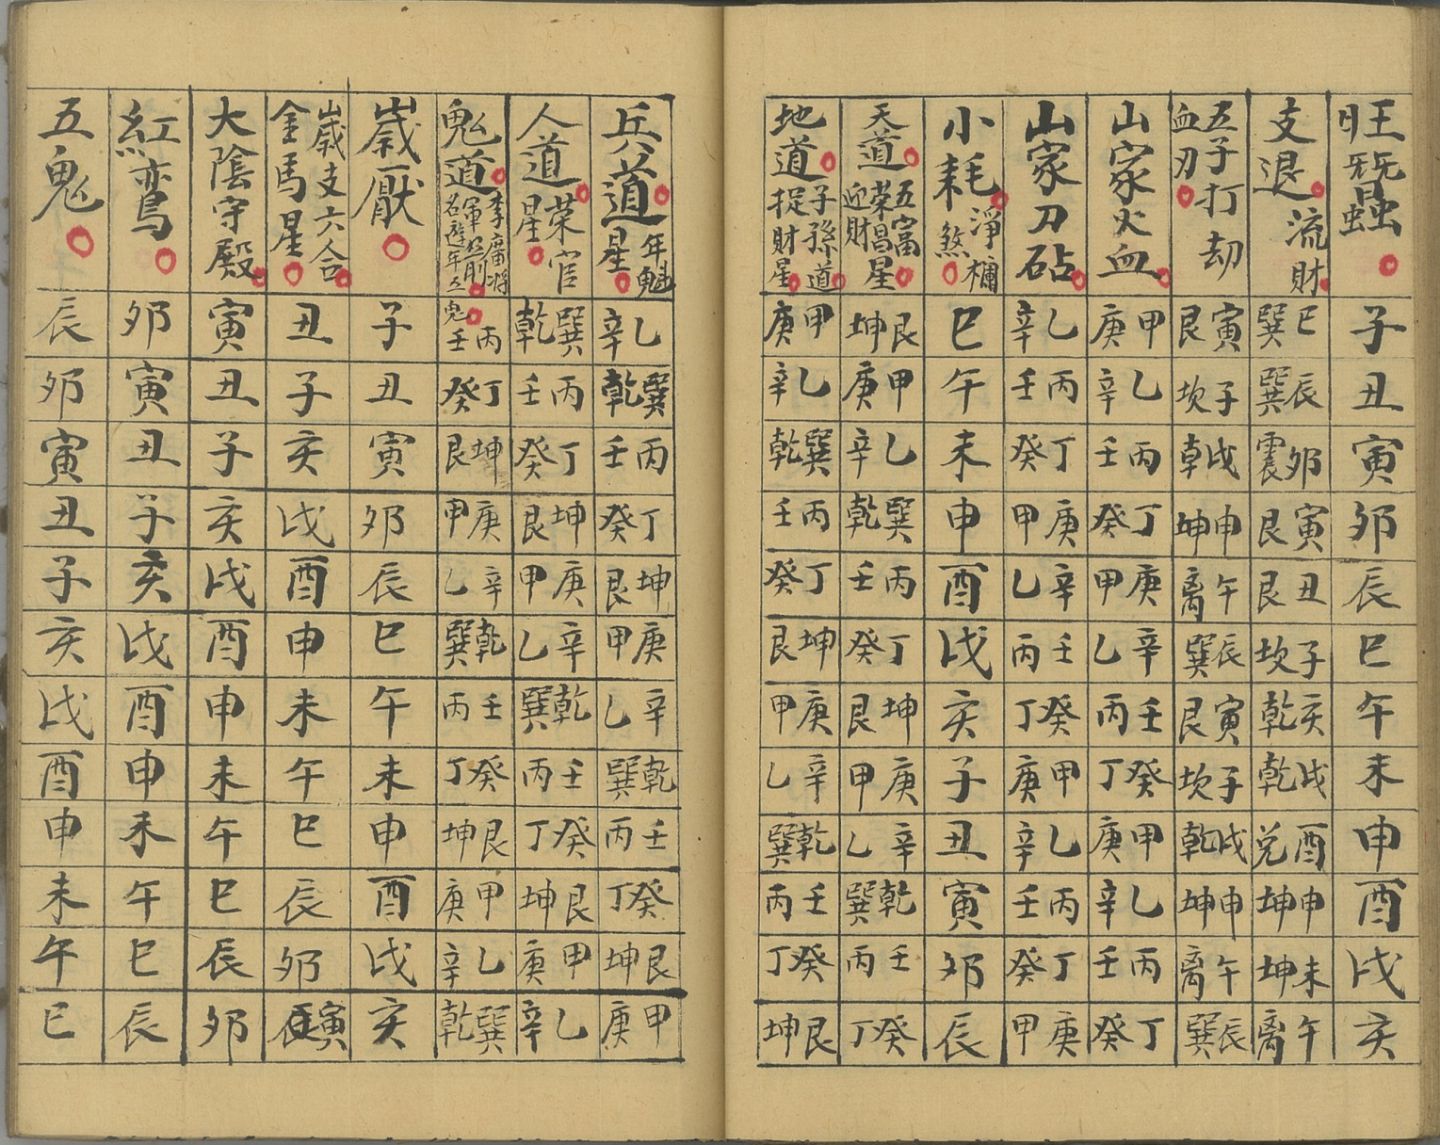 旺蠶 子 丑 寅 卯 辰 巳 午 未 申 酉 戌 亥
支退 流財 巳巽 辰巽 卯震 寅艮 丑艮 子坎 亥乾 戌乾 酉兌 申坤 未坤 午離
五子打劫 血刃 寅艮 子坎 戌乾 申坤 午離 辰巽 寅艮 子坎 戌乾 申坤 午離 辰巽
山家火血 甲庚 乙辛 丙壬 丁癸 庚甲 辛乙 壬丙 癸丁 甲庚 乙辛 丙壬 丁癸
山家刀砧 乙辛 丙壬 丁癸 庚甲 辛乙 壬丙 癸丁 甲庚 乙辛 丙壬 丁癸 庚甲
小耗 淨 煞 巳 午 未 申 酉 戌 亥 子 丑 寅 卯 辰
天道 五富 榮昌星 迎財 艮坤 甲庚 乙辛 巽乾 丙壬 丁癸 坤艮 庚甲 辛乙 乾巽 壬丙 癸丁
地道 子孫道 捉財星 甲庚 乙辛 巽乾 丙壬 丁癸 坤艮 庚甲 辛乙 乾巽 壬丙 癸丁 艮坤
兵道 年魁星 乙辛 巽乾 丙壬 丁癸 坤艮 庚甲 辛乙 乾巽 壬丙 癸丁 艮坤 甲庚
人道 榮官星 巽乾 丙壬 丁癸 坤艮 庚甲 辛乙 乾巽 壬丙 癸丁 艮坤 甲庚 乙辛
鬼道 李廣將軍箭 名遊年五鬼 丙壬 丁癸 坤艮 庚甲 辛乙 乾巽 壬丙 癸丁 艮坤 甲庚 乙辛 巽乾
歲厭 子 丑 寅 卯 辰 巳 午 未 申 酉 戌 亥
歲支六合 金馬星 丑 子 亥 戌 酉 申 未 午 巳 辰 卯 寅
大陰守殿 寅 丑 子 亥 戌 酉 申 未 午 巳 辰 卯
紅鸞 卯 寅 丑 子 亥 戌 酉 申 未 午 巳 辰
五鬼 辰 卯 寅 丑 子 亥 戌 酉 申 未 午 巳